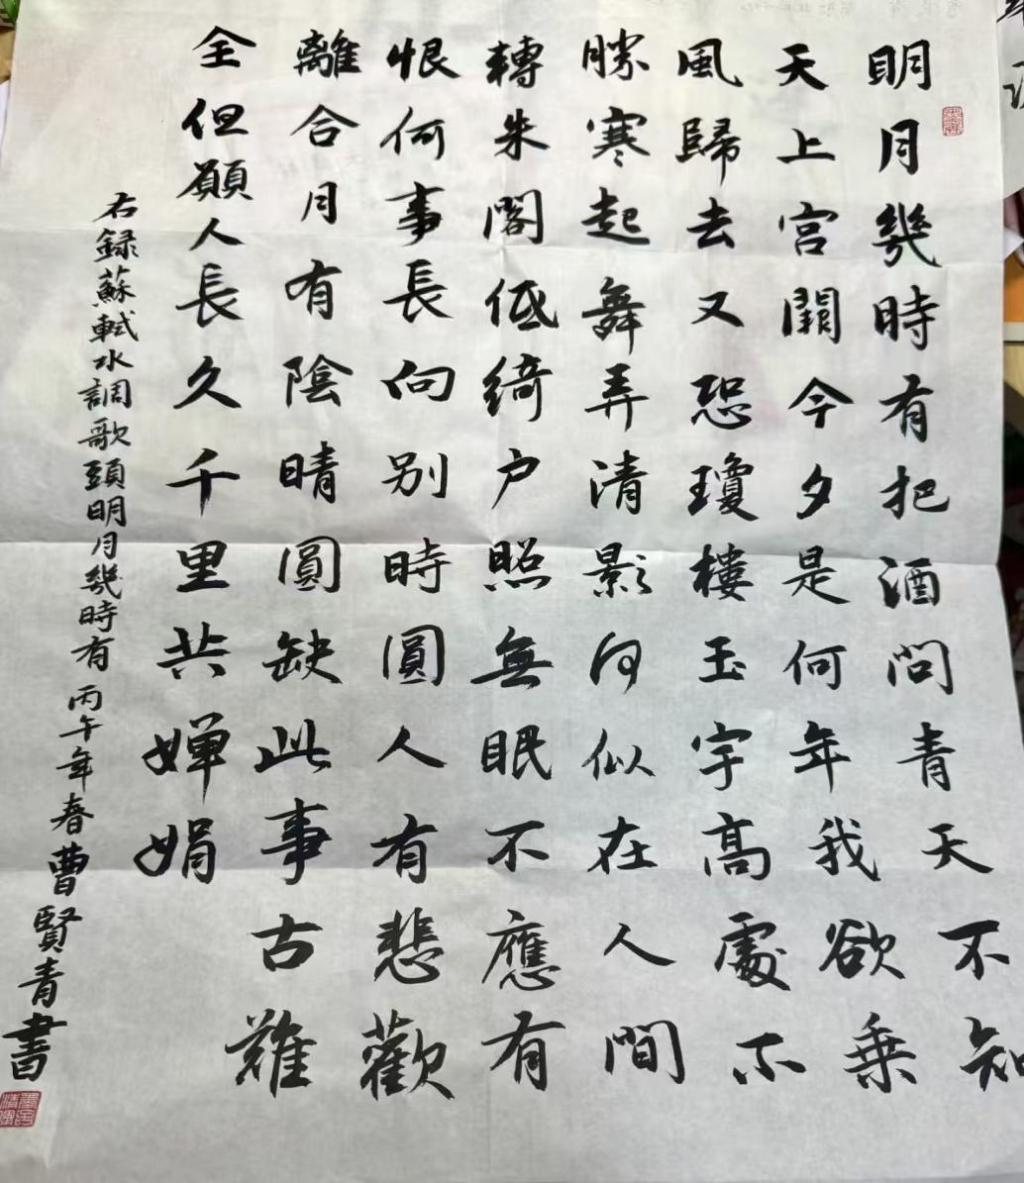 明月幾時有把酒問青天不知
天上宫闕今夕是何年我欲乗
風歸去又恐瓊樓玉宇高處不
勝寒起舞弄清影何似在人間
轉朱閣低綺户照無眠不應有
恨何事長向别時圓人有悲歡
離合月有陰晴圓缺此事古難
全但願人長久千里共嬋娟
右録蘇軾水調歌頭明月幾時有 丙午年春曹賢青書